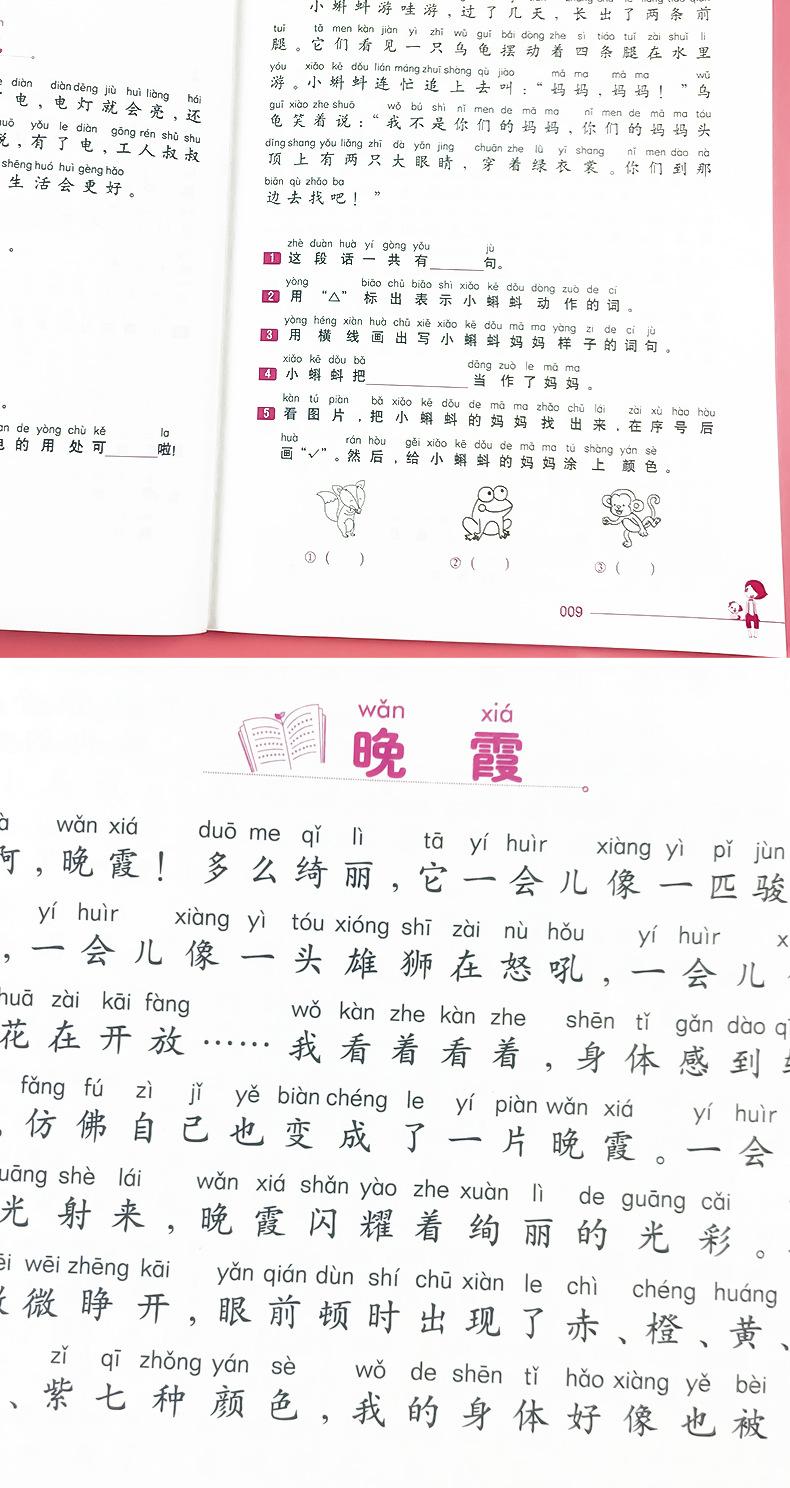 小蝌蚪游哇游，过了几天，长出了两条前
tuǐ tā men kàn jiàn yì zhī wū guī bǎi dòng zhe sì tiáo tuǐ zài shuǐ lǐ
腿。它们看见一只乌龟摆动着四条腿在水里
yóu xiǎo kē dǒu lián máng zhuī shàng qù jiào mā ma mā ma wū
游。小蝌蚪连忙追上去叫：“妈妈，妈妈！”乌
guī xiào zhe shuō wǒ bú shì nǐ men de mā ma nǐ men de mā ma tóu
龟笑着说：“我不是你们的妈妈，你们的妈妈头
dǐng shang yǒu liǎng zhī dà yǎn jing chuān zhe lǜ yī shang nǐ men dào nà
顶上有两只大眼睛，穿着绿衣裳。你们到那
biān qù zhǎo ba
边去找吧！”
zhè duàn huà yí gòng yǒu jù
1 这段话一共有______句。
yòng biāo chū biǎo shì xiǎo kē dǒu dòng zuò de cí
2 用“△”标出表示小蝌蚪动作的词。
yòng héng xiàn huà chū xiě xiǎo kē dǒu mā ma yàng zi de cí jù
3 用横线画出写小蝌蚪妈妈样子的词句。
xiǎo kē dǒu bǎ dàng zuò le mā ma
4 小蝌蚪把______当作了妈妈。
kàn tú piàn bǎ xiǎo kē dǒu de mā ma zhǎo chū lái zài xù hào hòu
5 看图片，把小蝌蚪的妈妈找出来，在序号后
huà rán hòu gěi xiǎo kē dǒu de mā ma tú shàng yán sè
画“✓”。然后，给小蝌蚪的妈妈涂上颜色。
①（ ） ②（ ） ③（ ）
009
diàn diàn dēng jiù huì liàng hái
电，电灯就会亮，还
yǒu le diàn gōng rén shū shu
说，有了电，工人叔叔
shēng huó huì gèng hǎo
生活会更好。
de yòng chù kě la
的用处可______啦！
wǎn xiá
晚霞
wǎn xiá duō me qǐ lì tā yí huìr xiàng yì pǐ jùn
啊，晚霞！多么绮丽，它一会儿像一匹骏
yí huìr xiàng yì tóu xióng shī zài nù hǒu yí huìr
，一会儿像一头雄狮在怒吼，一会儿
huā zài kāi fàng wǒ kàn zhe kàn zhe shēn tǐ gǎn dào
花在开放……我看着看着，身体感到
fǎng fú zì jǐ yě biàn chéng le yí piàn wǎn xiá yí huìr
，仿佛自己也变成了一片晚霞。一会
shè lái wǎn xiá shǎn yào zhe xuàn lì de guāng cǎi
光射来，晚霞闪耀着绚丽的光彩。
wēi zhēng kāi yǎn qián dùn shí chū xiàn le chì chéng huáng
微睁开，眼前顿时出现了赤、橙、黄、
zǐ qī zhǒng yán sè wǒ de shēn tǐ hǎo xiàng yě bèi
、紫七种颜色，我的身体好像也被